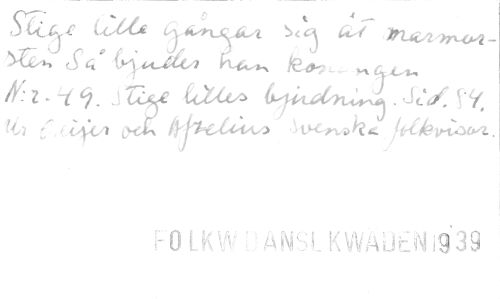 Stige lille gångar sig åt marmor-
sten Så bjuder han konungen
N:r. 49. Stige lilles bjudning. Sid. 54.
Ur Geijer och Afzelius Svenska folkvisor.
FOLKW DANSLKWÄDEN 1939